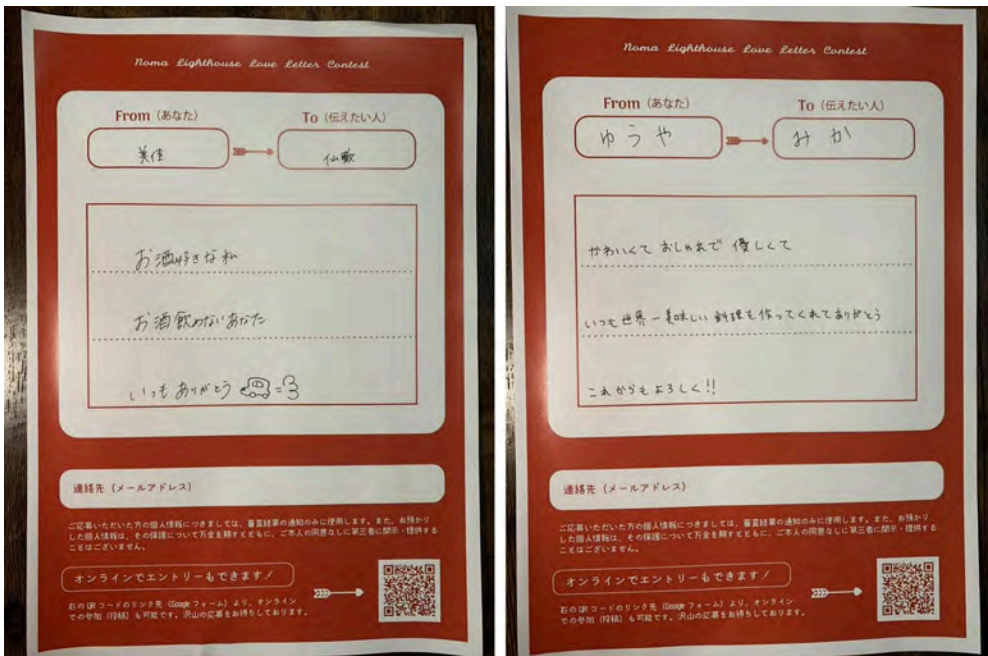 Noma Lighthouse Love Letter Contest
From (あなた)
To (伝えたい人)
美佳
お酒好きな私
お酒飲めないあなた
いつもありがとう
連絡先 (メールアドレス)
ご応募いただいた方の個人情報につきましては、審査結果の通知のみに使用します。また、お預かり
した個人情報は、その保護について万全を期すとともに、ご本人の同意なしに第三者に開示・提供する
ことはございません。
オンラインでエントリーもできます!
右のQRコードのリンク先 (Googleフォーム) より、オンライン
での参加 (投稿) も可能です。沢山の応募をお待ちしております。
Noma Lighthouse Love Letter Contest
From (あなた)
To (伝えたい人)
ゆうや
みか
かわいくて おしゃれで 優しくて
いつも世界一美味しい料理を作ってくれてありがとう
これからもよろしく!!
連絡先 (メールアドレス)
ご応募いただいた方の個人情報につきましては、審査結果の通知のみに使用します。また、お預かり
した個人情報は、その保護について万全を期すとともに、ご本人の同意なしに第三者に開示・提供する
ことはございません。
オンラインでエントリーもできます!
右のQRコードのリンク先 (Googleフォーム) より、オンライン
での参加 (投稿) も可能です。沢山の応募をお待ちしております。